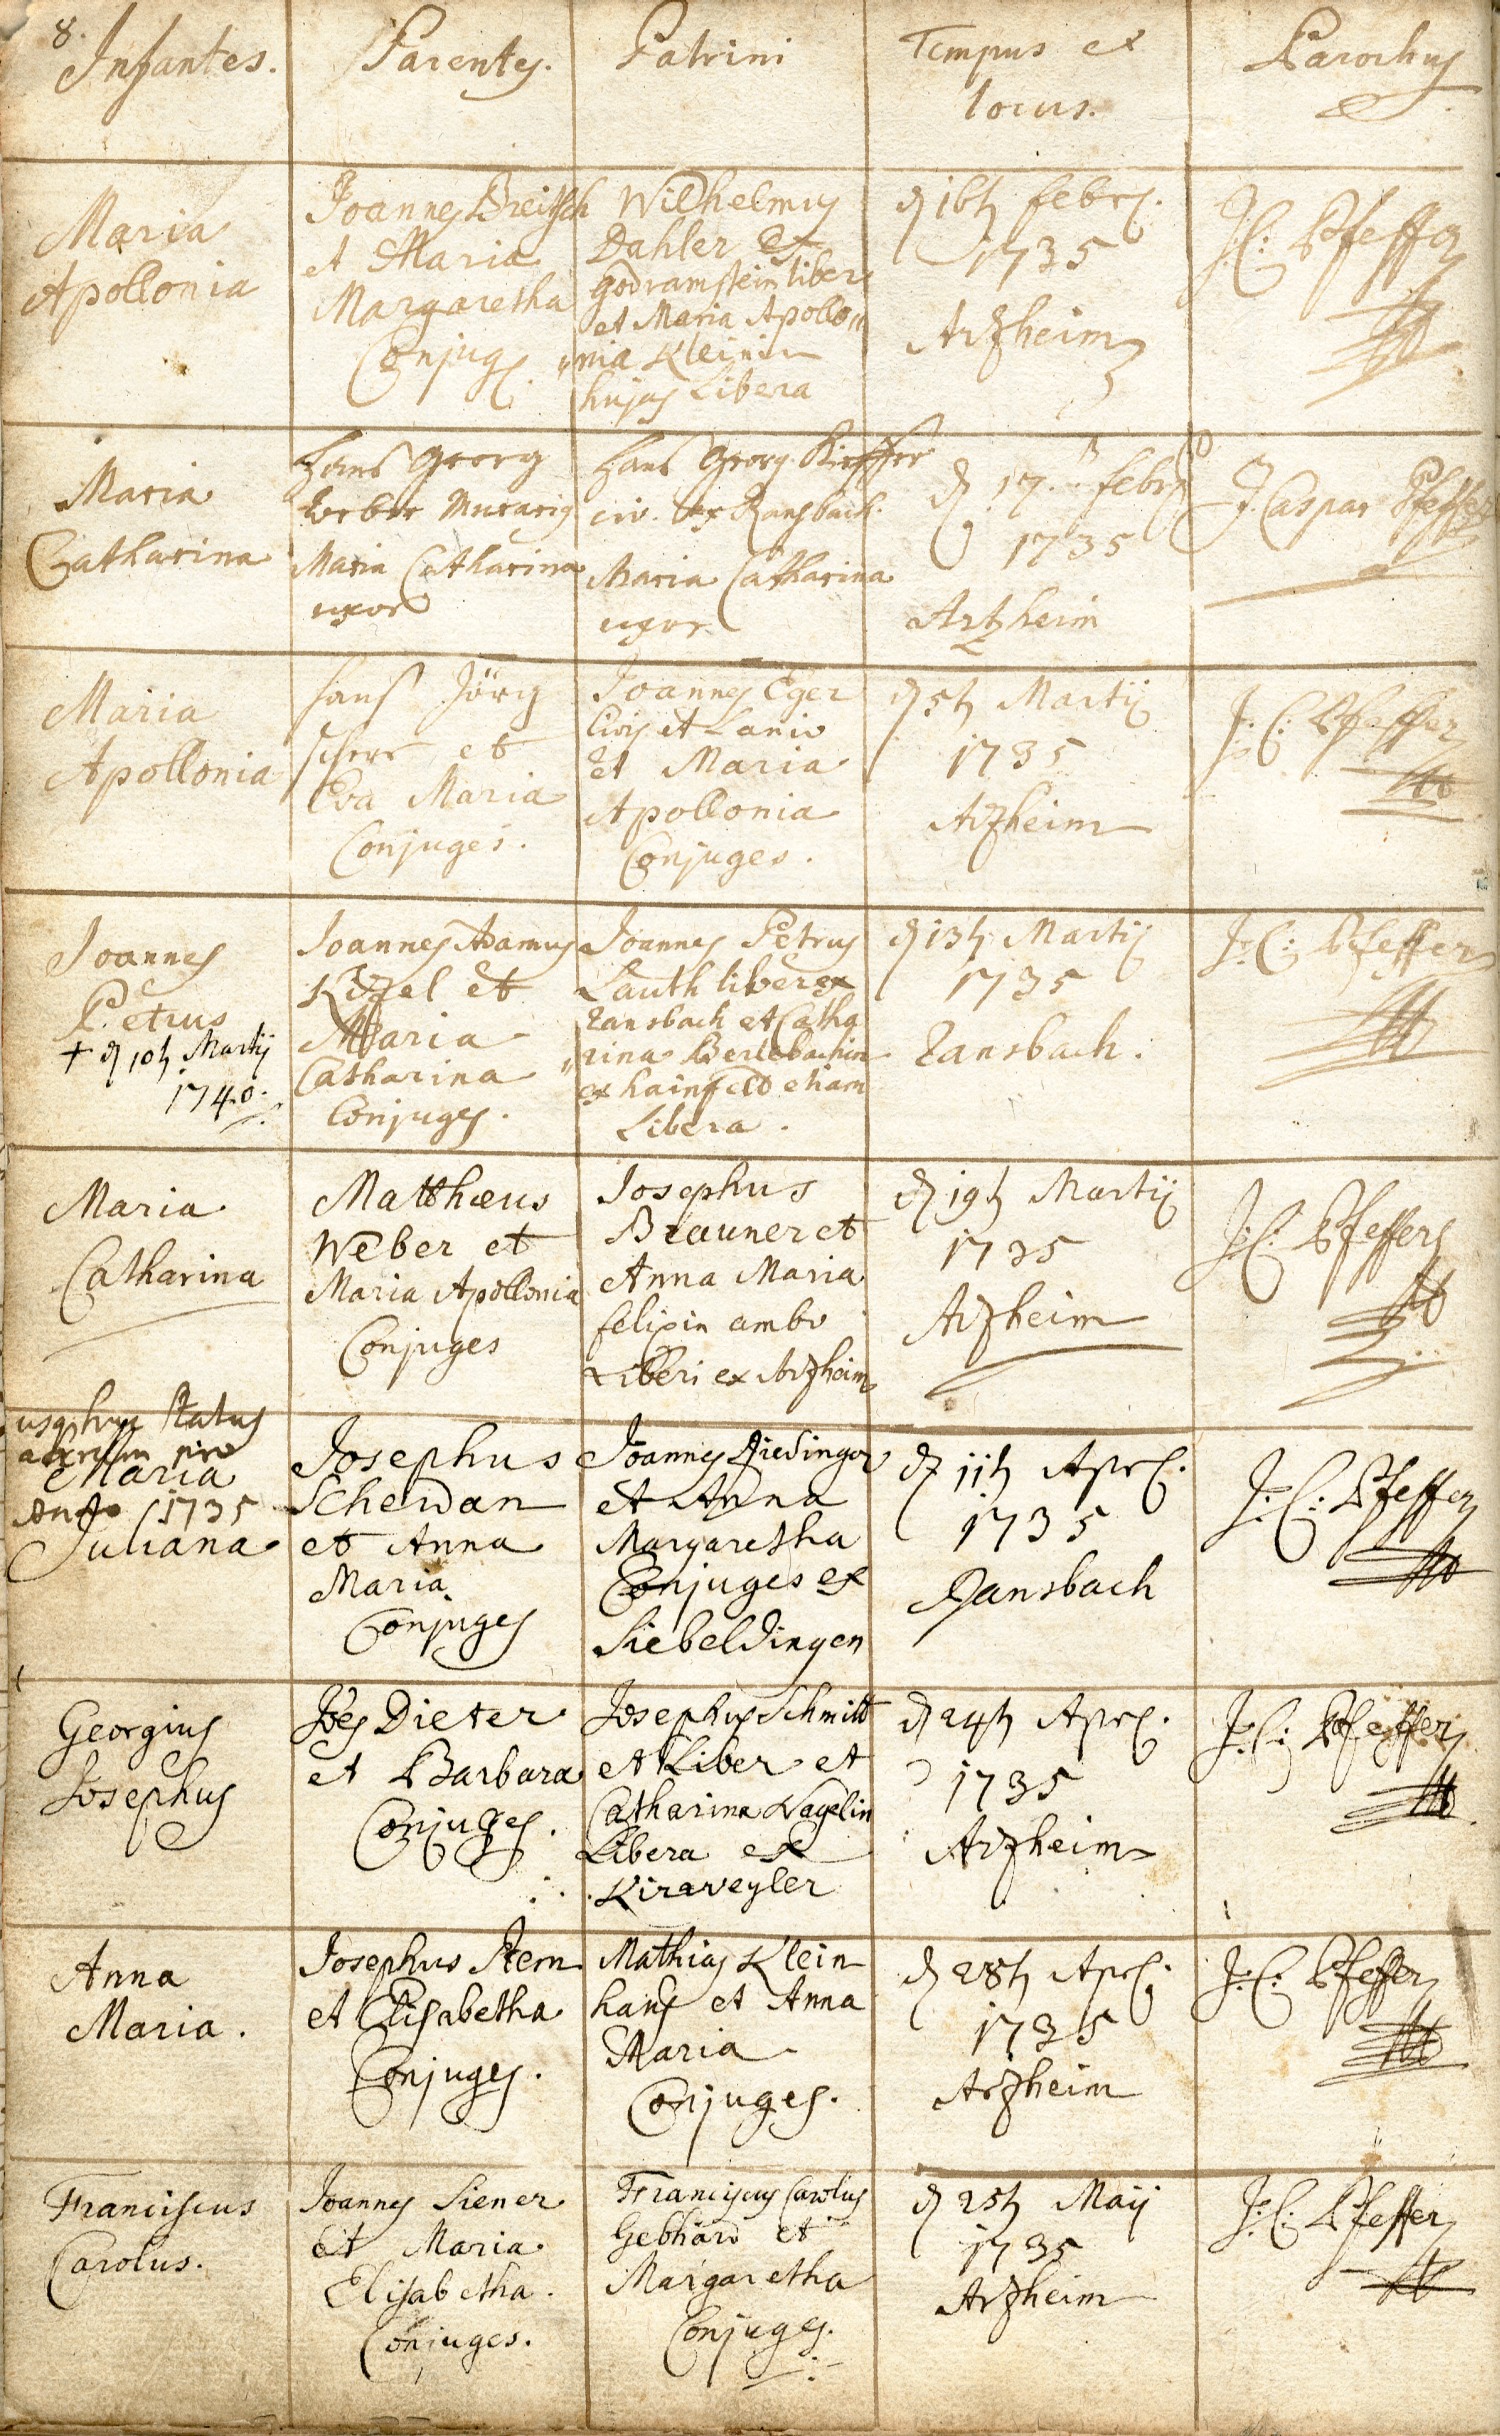 8.
Infantes.
Parentes.
Patrini
Tempus et
locus.
Parochus
Maria
Apollonia
Joannes Breitsch
et Maria
Margaretha
Conjug.
Wilhelmus
Dahler ex
godramstein liber
et Maria Apollo„
„nia Kleinin
hujas Libera
d 16t febr.
1735
Arzheim
J: C: Pfeffer
Maria
Catharina
Hans Georg
Weber Murarius
Maria Catharina
uxor
Hans Georg Kieffer
civ. ex Ransbach.
Maria Catharina
uxor
d 17. febr
1735
Artzheim
J. Caspar Pfeffer
Maria
Apollonia
Hans Jörg
Scherr et
Eva Maria
Conjuges.
Joannes Eger
Civis et Lanio
et Maria
Apollonia
Conjuges.
d 5t Martij
1735
Arzheim
J: C: Pfeffer
Joannes
Petrus
+ d 10t Martij
1740.
Joannes Adamus
Kizel et
Maria
Catharina
Conjuges.
Joannes Petrus
Lauth liber ex
Ransbach et Catha
„rina Berlebachin
ex hainfeld etiam
Libera.
d 13t Martij
1735
Ransbach.
J: C: Pfeffer
Maria
Catharina
Matthæus
Weber et
Maria Apollonia
Conjuges
Josephus
Brauner et
Anna Maria
felixin ambo
Liberi ex Arzheim
d 19t Martij
1735
Arzheim
J: C: Pfeffer
usq huc status
pro
Maria
Anno 1735
Juliana
Josephus
Scherdan
et Anna
Maria
Conjuges
Joannes Diedinger
et Anna
Margaretha
Conjuges ex
Siebeldingen
d 11t Apr.
1735
Ransbach
J: C: Pfeffer
Georgius
Josephus
Joes Dieter
et Barbara
Conjuges.
Josephus Schmitt
et Liber et
Catharina Nagelin
Libera ex
Kirrweyler
d 24t Apr.
1735
Arzheim
J: C: Pfeffer
Anna
Maria.
Josephus Stern
et Elisabetha
Conjuges.
Mathias Klein
hans et Anna
Maria
Conjuges.
d 28t Apr.
1735
Arzheim
J: C: Pfeffer
Franciscus
Carolus.
Joannes Siener
et Maria
Elisabetha.
Conjuges.
Franciscus Carolus
Gebhard et
Margaretha
Conjuges.
d 25t Maij
1735
Arzheim
J: C: Pfeffer